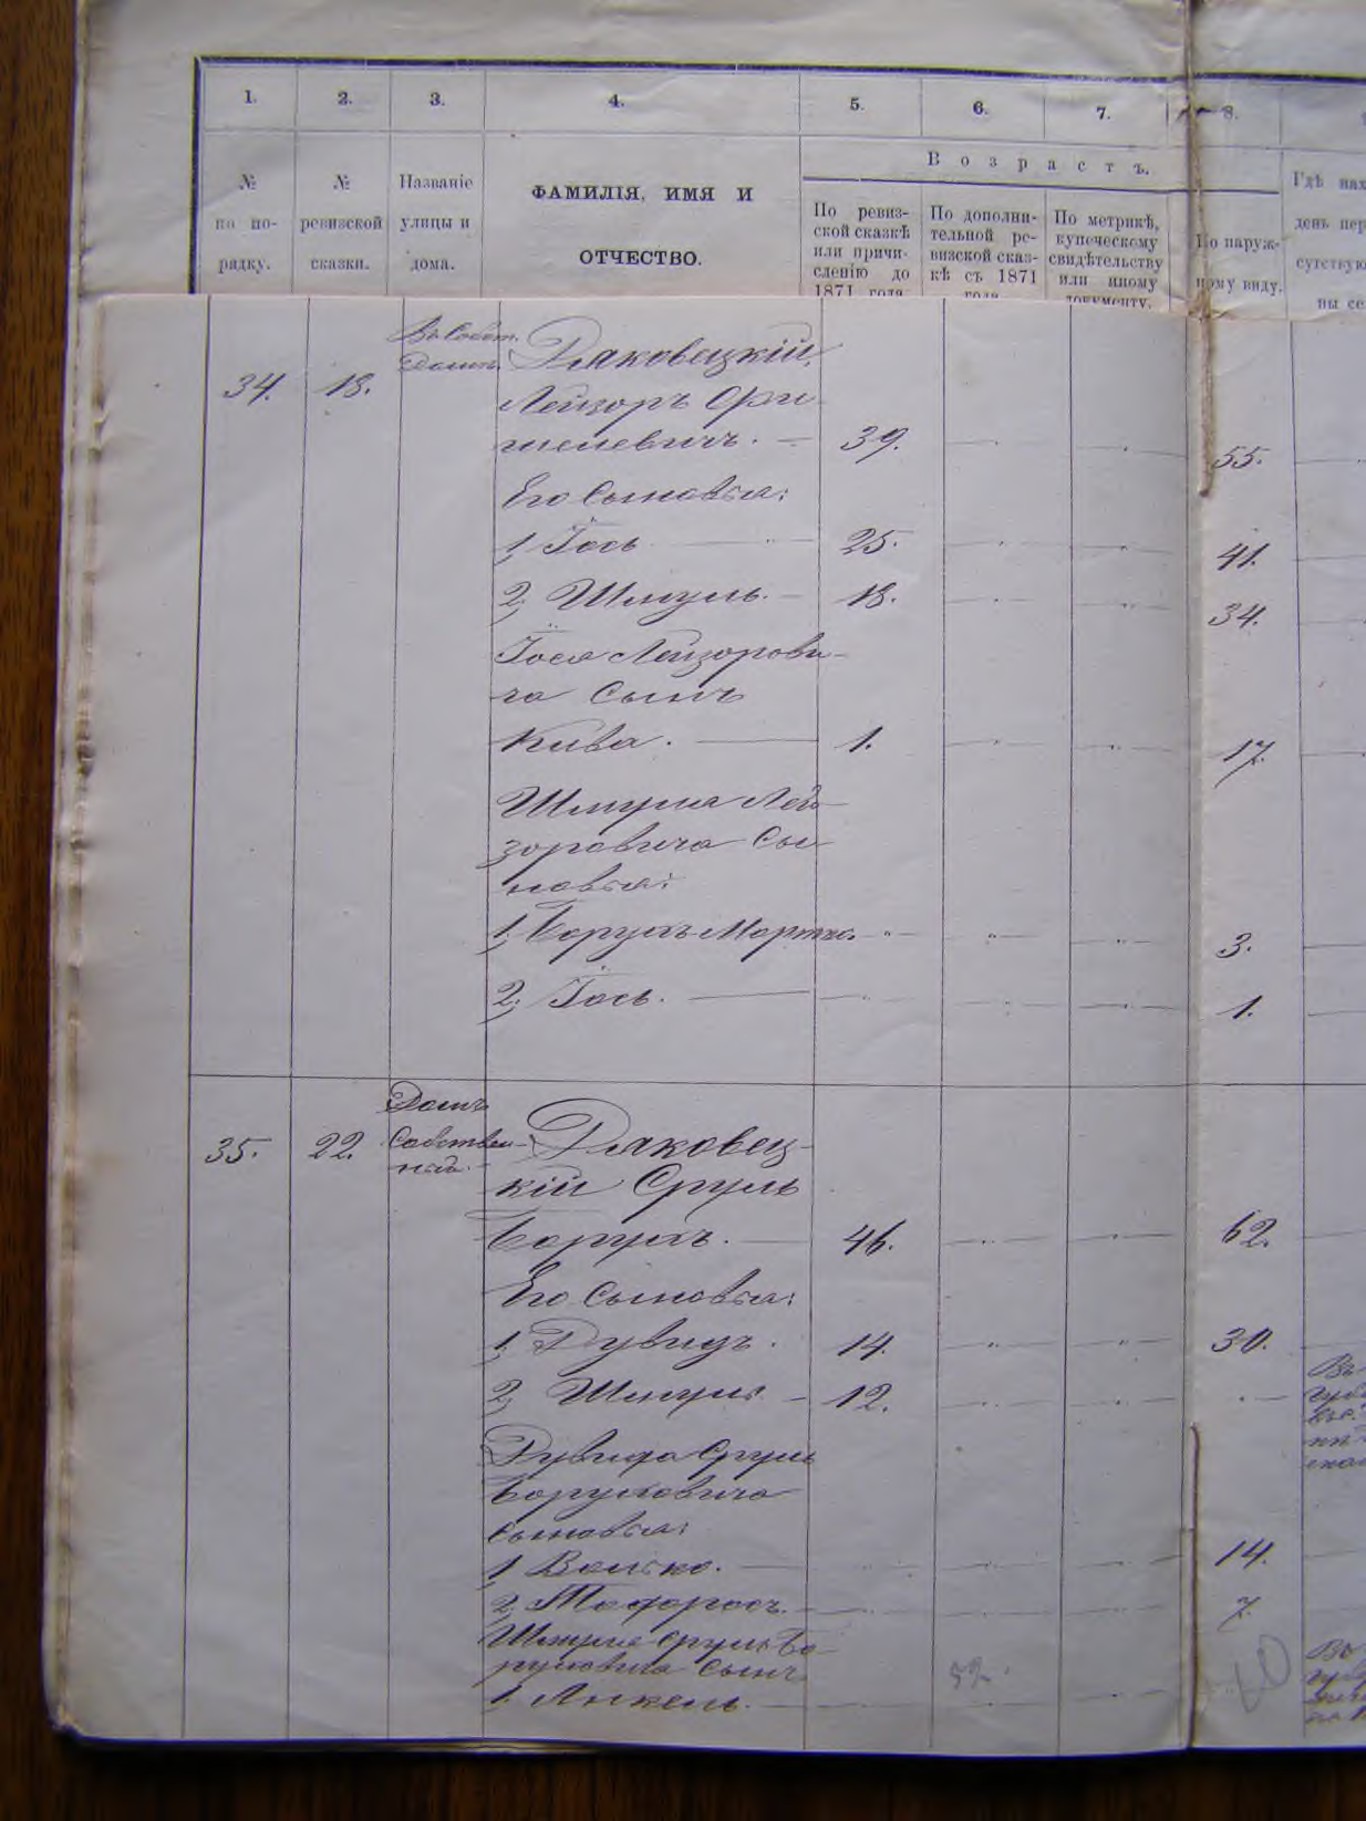 1.
2.
3.
4.
5.
6.
7.
8.
№ по по-рядку.
№ ревизской сказки.
Названіе улицы и дома.
ФАМИЛІЯ, ИМЯ И
ОТЧЕСТВО.
Возрастъ.
По ревиз-
ской сказкѣ
или причи-
сленію до
1871 года
По дополни-
тельной ре-
визской сказ-
кѣ съ 1871
года
По метрикѣ,
купеческому
свидѣтельству
или иному
документу.
По наруж-
ному виду.
Гдѣ
34.
18.
Въ Собст.
Домѣ.
Дяковецкій,
Лейзоръ
39.
55.
Его Сыновья:
1, Іось
25.
41.
2, Шмуль.
18.
34.
Іося Лейзорови-
ча Сынъ
Кива.
1.
17.
Шмуля Лей-
зоровича Сы-
новья:
1, Борухъ
3.
2, Іось.
1.
35.
22.
Домъ
Собствен-
Дяковец-
кій Сруль
Борухъ.
46.
62.
Его Сыновья:
1, Дувидъ.
14.
30.
2, Шмуль
12.
Дувида Сруль
Боруховича
Сыновья:
1, Волько.
14.
2,
7.
Шмуля Сруль Бо-
руховича Сынъ
52.
1. Янкель.